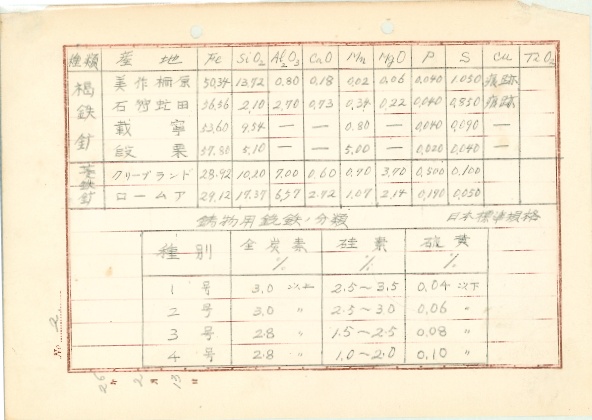 種類 産地 Fe SiO2 Al2O3 CaO Mn MgO P S Cu TiO2
褐鉄鉱
美作柵原 50.34 13.72 0.80 0.18 0.02 0.06 0.040 1.050 痕跡
石狩虻田 56.56 2.10 2.70 0.73 0.34 0.22 0.040 0.850 痕跡
載寧 53.60 9.54 — — 0.80 — 0.040 0.090 —
殷栗 57.80 5.10 — — 5.00 — 0.020 0.040 —
クリーブランド 28.92 10.20 7.00 0.60 0.70 3.70 0.500 0.100
ロームア 29.12 17.37 6.57 2.72 1.07 2.14 0.190 0.050
鋳物用銑鉄ノ分類 日本標準規格
種別 全炭素% 硅素% 硫黄%
1号 3.0 以上 2.5~3.5 0.04 以下
2号 3.0 〃 2.5~3.0 0.06 〃
3号 2.8 〃 1.5~2.5 0.08 〃
4号 2.8 〃 1.0~2.0 0.10 〃
No. 2
26年 2月 13日